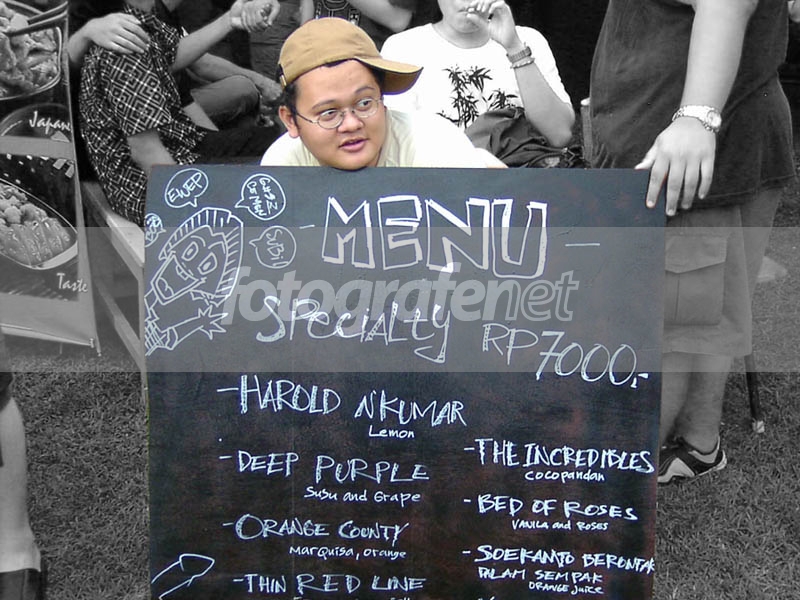 Japane
Taste
EWEP
SiBi
- MENU -
fotografenet
SPecialty RP 7000,-
- HAROLD N'KUMAR
Lemon
- DEEP PURPLE
SUSU and Grape
- ORANGE COUNTY
MARQUISA, ORANGE
- THIN RED LINE
- THE INCREDIBLES
COCOPANDAN
- BED OF ROSES
VANILA and ROSES
- SOEKAMTO BERONTAK
DALAM SEMPAK
ORANGE JUICE